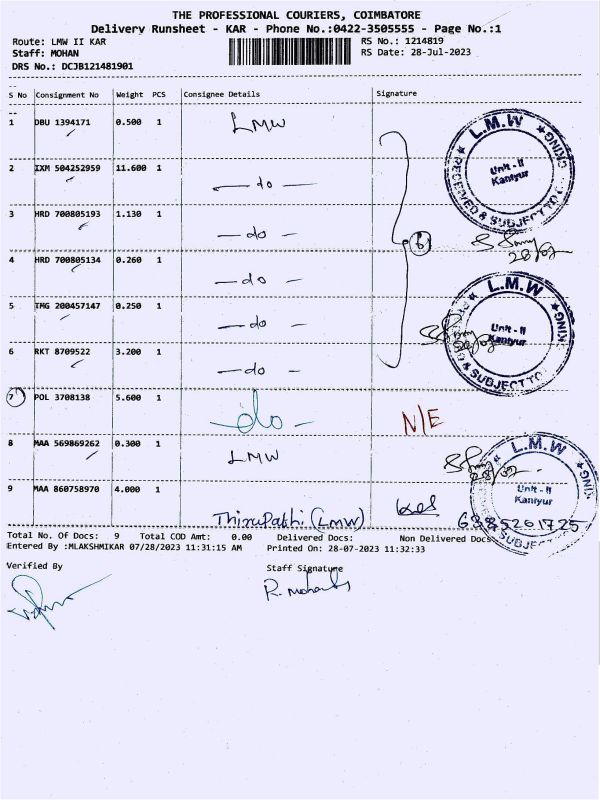 THE PROFESSIONAL COURIERS, COIMBATORE
Delivery Runsheet - KAR - Phone No.:0422-3505555 - Page No.:1
Route: LMW II KAR
RS No.: 1214819
Staff: MOHAN
RS Date: 28-Jul-2023
DRS No.: DCJB121481901
S No Consignment No Weight PCS Consignee Details Signature
1 DBU 1394171 0.500 1 LMW
2 IXM 504252959 11.600 1 — do —
3 HRD 700805193 1.130 1 — do —
4 HRD 700805134 0.260 1 — do —
5 TMG 200457147 0.250 1 — do —
6 RKT 8709522 3.200 1 — do —
7 POL 3708138 5.600 1 — do — N/E
8 MAA 569869262 0.300 1 LMW
9 MAA 860758970 4.000 1 Thirupathi (LMW) 6385261725
6
L.M.W
Unit - II
Kaniyur
RECEIVED & SUBJECT TO
KING
28/07
L.M.W
Unit - II
Kaniyur
& SUBJECT TO
KING
L.M.W
Unit - II
Kaniyur
SUBJE
KING
Total No. Of Docs: 9 Total COD Amt: 0.00 Delivered Docs: Non Delivered Docs
Entered By :MLAKSHMIKAR 07/28/2023 11:31:15 AM Printed On: 28-07-2023 11:32:33
Verified By Staff Signature
R. Mohan